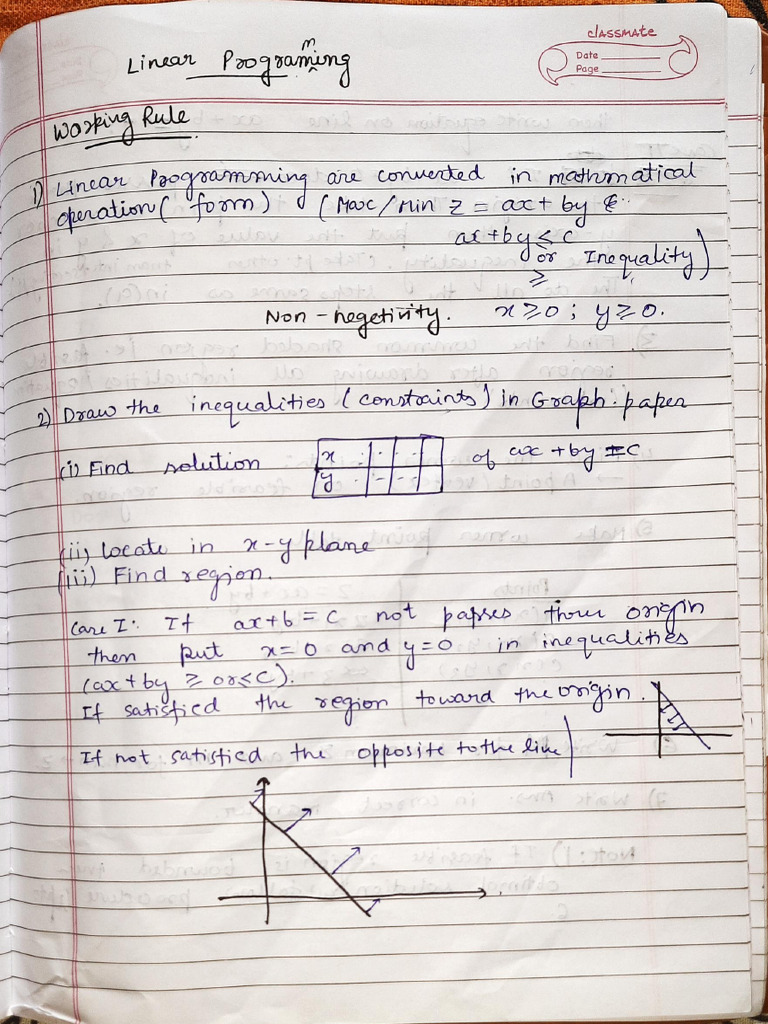 classmate
Date
Page
Linear Programming
Working Rule
1) Linear Programming are converted in mathmatical
operation (form) (Max/Min z = ax + by &
ax + by ≤ c
or Inequality)
≥
Non-negetivity. x ≥ 0 ; y ≥ 0.
2) Draw the inequalities (constraints) in Graph paper
(i) Find solution x y of ax + by = c
(ii) Locate in x-y plane
(iii) Find region.
Case I: If ax + b = c not passes throw origin
then put x = 0 and y = 0 in inequalities
(ax + by ≥ or ≤ c).
If satisfied the region toward the origin.
If not satisfied the opposite to the line